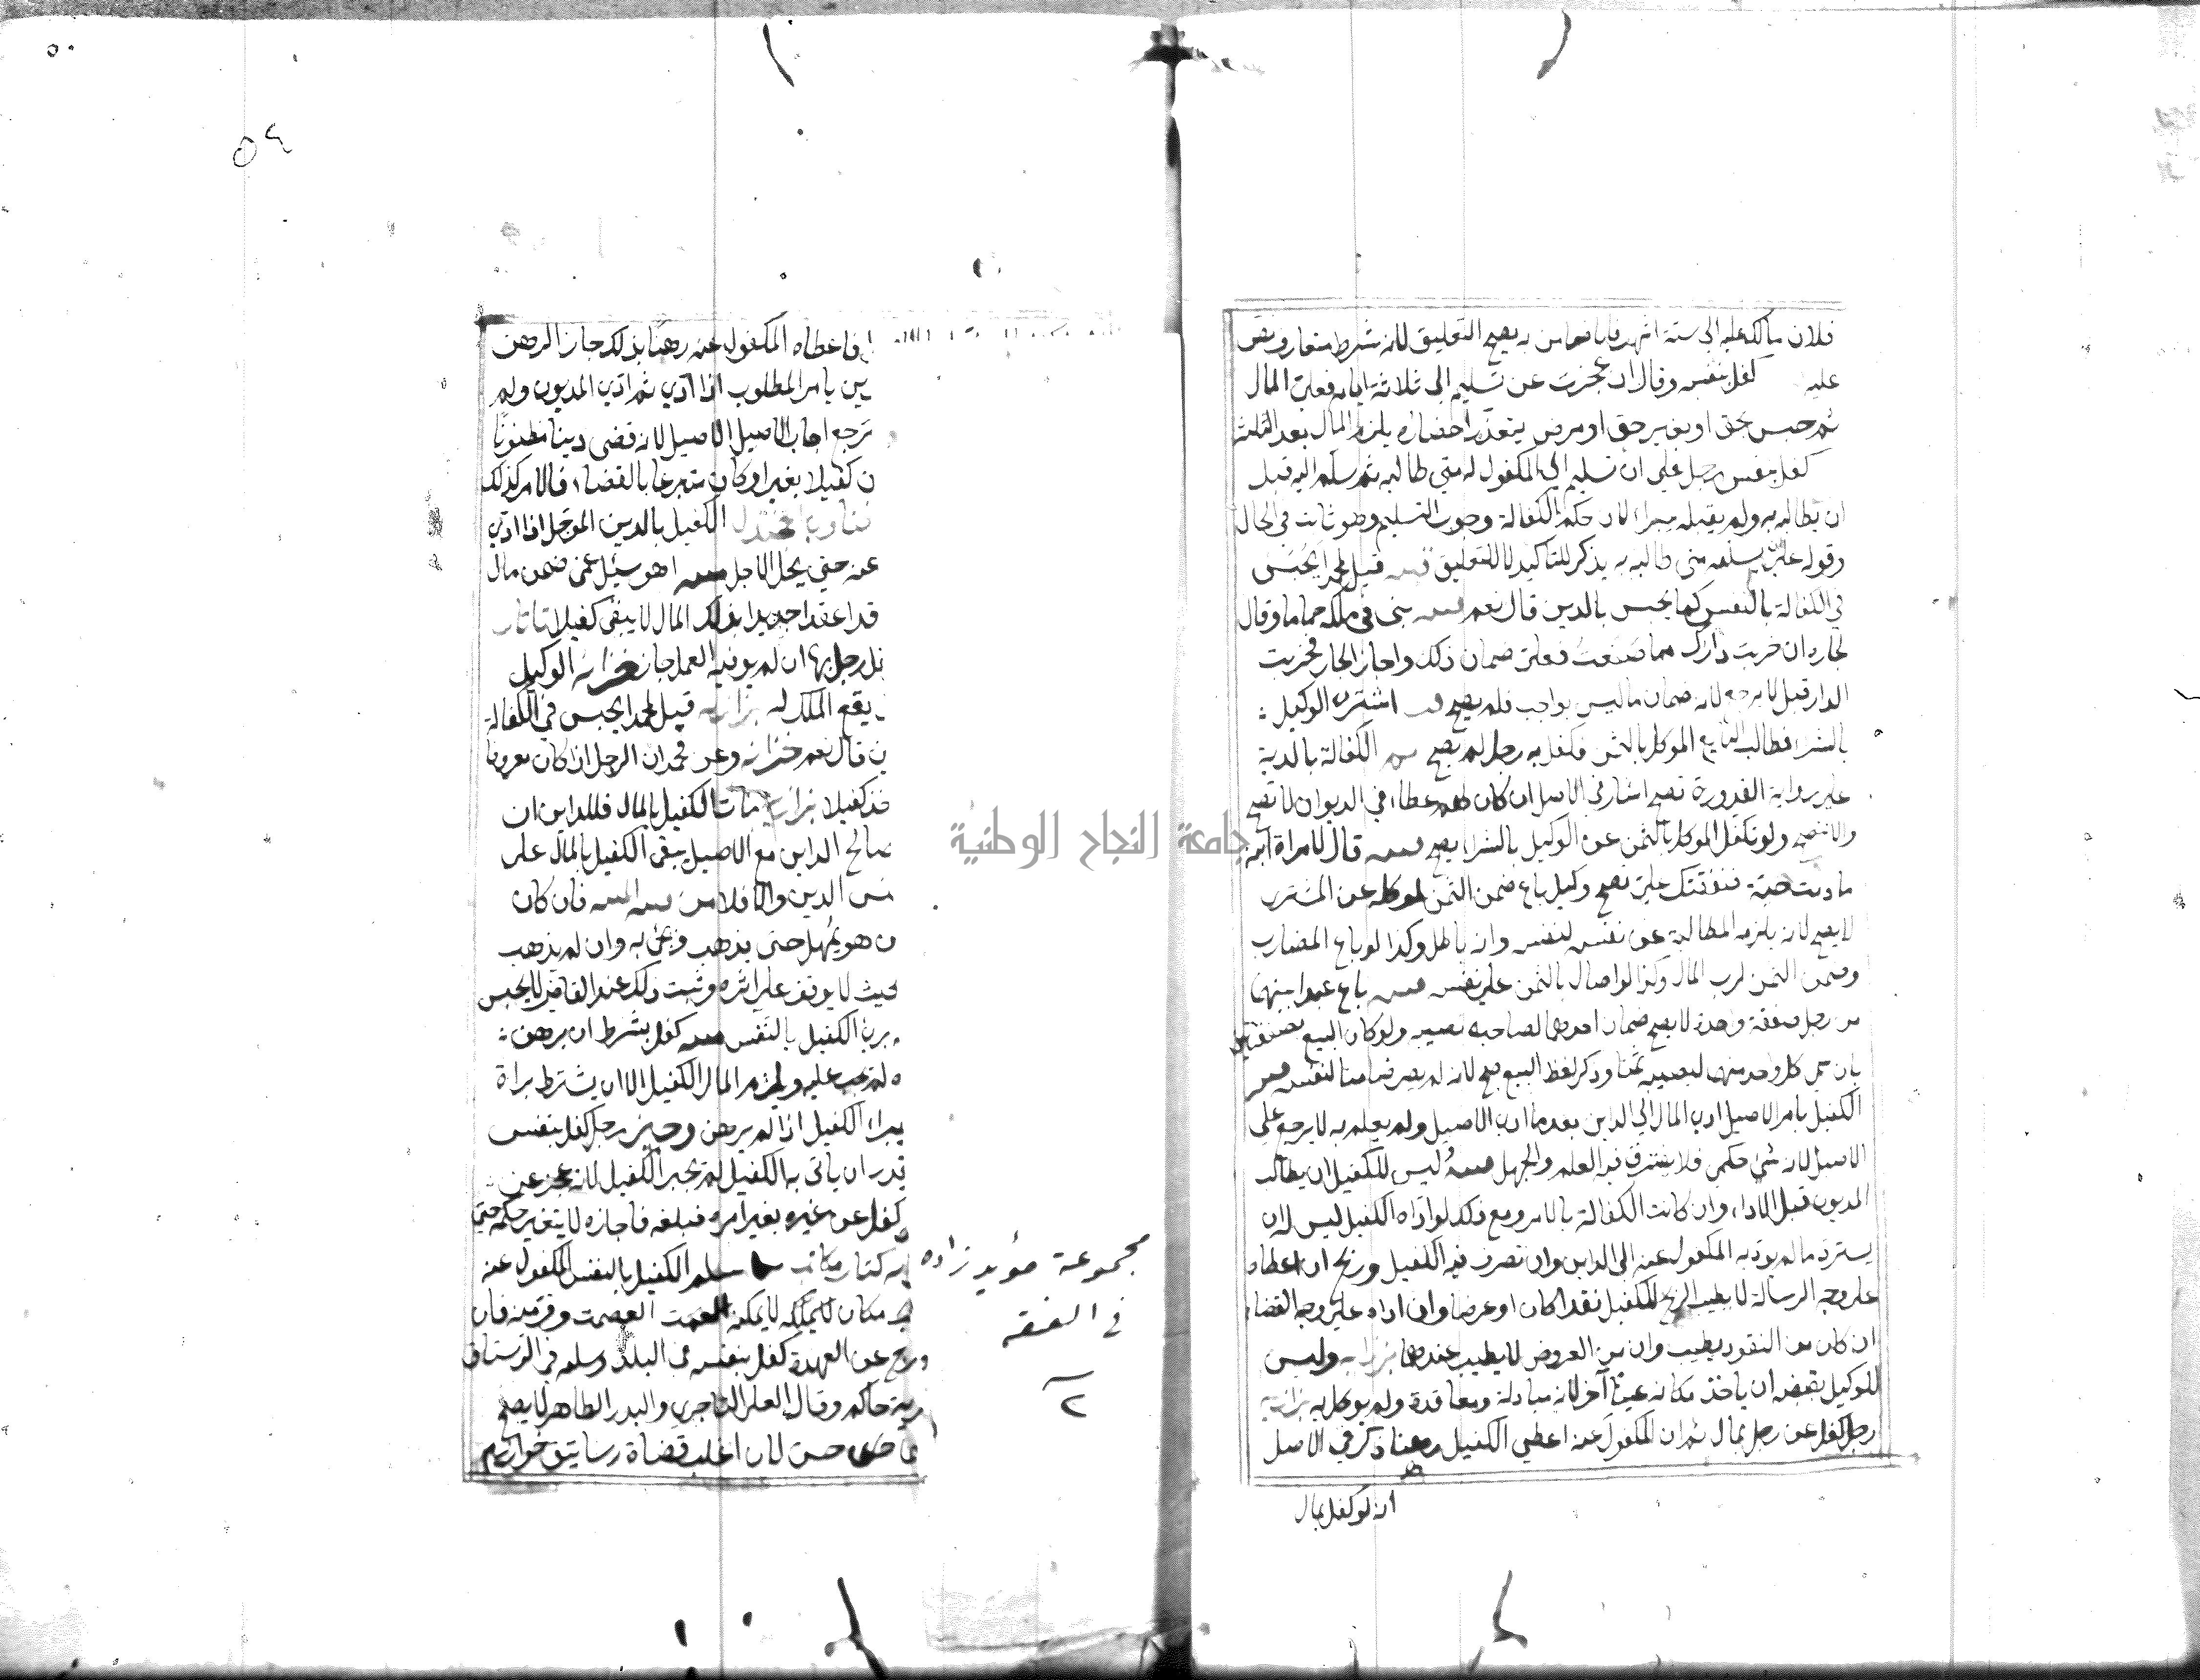 فلان مالك عليه الى ستة اشهر فانا ضامن به يصح التعليق لانه شرط متعارف نص
عليه كفل بنفسه وقال ان عجزت عن تسليمه الى ثلاثة ايام فعلي المال
ثم حبس بحق او بغير حق او مرض يتعذر احضاره يلزمه المال بعد الثلاثة
كفل بنفس رجل على ان تسليمه الى المكفول له متى طالبه ثم سلم اليه قبل
ان يطالبه به ولم يقبله يبرأ لان حكم الكفالة وجوب التسليم وهو ثابت في الحال
وقوله على ان يسلمه متى طالبه به يذكر للتاكيد لا للتعليق قيل لمحمد ايحبس
في الكفالة بالنفس كما يحبس بالدين قال نعم بنى في ملكه حماما وقال
لجاره ان خربت دارك مما صنعت فعلي ضمان ذلك واجاز الجار فخربت
الدار قبل لا يرجع لانه ضمان ما ليس بواجب فلم يصح اشترى الوكيل
بالشراء فطالب البايع الموكل بالثمن فكفل به رجل لم يصح الكفالة بالدية
على رواية القدوري تصح اشار في الاصل ان كان لهم عطاء في الديوان لا تصح
والا تصح ولو تكفل الموكل بالثمن عن الوكيل بالشراء يصح قال لامراة ابنه
ما دمت حية فنفقتك علي يصح وكيل باع ضمن الثمن لموكله عن المشتري
لا يصح لانه يلزمه المطالبة عن نفسه لنفسه وانه باطل وكذا لو باع المضارب
وضمن الثمن لرب المال وكذا لو احال بالثمن على نفسه باع عبدا بينهما
من رجل صفقة واحدة لا يصح ضمان احدهما لصاحبه نصيبه ولو كان البيع بصفقتين
بان سمى كل واحد منهما لنصيبه ثمنا وذكر لفظ البيع صح لانه لم يصر ضامنا لنفسه
الكفيل بامر الاصيل ادى المال الى الدين بعد ما ادى الاصيل ولم يعلم به لا يرجع على
الاصيل لانه شئ حكمي فلا يفترق فيه العلم والجهل ليس للكفيل ان يطالب
المديون قبل الاداء وان كانت الكفالة بالامر ومع ذلك لو اداه الكفيل ليس له ان
يسترد ما لم يود به المكفول عنه الى الداين وان تصرف فيه الكفيل وربح ان اعطاه
على وجه الرسالة لا يطيب الربح للكفيل نقدا كان او عرضا وان اداه على وجه القضاء
ان كان من النقود يطيب وان من العروض لا يطيب عندهما بزازيه وليس
للوكيل بقبضه ان ياخذ مكانه عينا آخر لانه مبادلة ومعاقدة ولم يوكل به بزازيه
رجل كفل عن رجل بمال ثم ان المكفول عنه اعطى الكفيل رهنا ذكر في الاصل
انه لو كفل بمال
فاعطاه المكفول عنه رهنا بذلك جاز الرهن
بامر المطلوب اذا ادى ثم ادى المديون ولم
ترجع احاب الاصيل الاصيل لانه قضى دينا مظنونا
كفيلا بغير او كان متبرعا بالقضاء فالامر كذلك
الكفيل بالدين المؤجل اذا ادى
عنه حتى يحل الاجل اهو سئل عمن ضمن مال
قد اعقد اجديدا بذلك المال لا يبقى كفيلا
رجل بها ان لم يوفيه العمل جاز خزانه الوكيل
يقع الملك له بزازيه قيل لمحمد ايحبس في الكفالة
قال نعم خزانه وعن محمد ان الرجل اذا كان معروفا
كفيلا بزازيه مات الكفيل بالمال فللداين ان
صالح الداين مع الاصيل يبقى الكفيل بالمال على
الدين والا فلا فان كان
هو يمهل حتى يذهب ويجئ به وان لم يذهب
بحيث لا يوقف على اثره وثبت ذلك عند القاضي لا يحبس
برئ الكفيل بالنفس كفل بشرط ان يرهن
لم يجب عليه ويلزم المال الكفيل الا ان يشترط براة
يبراء الكفيل اذا لم يرهن وجيز رجل كفل بنفس
يقدر ان ياتى به الكفيل لم يجبر الكفيل لانه عجز عن
كفل عن غيره بغير امره فبلغه فاجازه لا يتغير حكمه حتى
سلم الكفيل بالنفس المكفول عنه
مكان لا يملكه لا يمكنه العصمت وفر منه فان
عن العهدة كفل بنفسه في البلد وسلمه في الرستاق
حاكم وقال العلاء التاجري والبدر الطاهر لا يصح
حسن لان اغلب قضاة رساتيق خوارزم
مجموعة مؤيد زاده
في الفقه
٢
٥٤
جامعة النجاح الوطنية